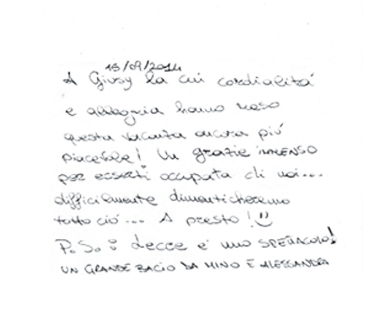 15/09/2014
A Giusy la cui cordialità
e allegria hanno reso
questa vacanza ancora più
piacevole! Un grazie IMMENSO
per esserti occupata di noi...
difficilmente dimenticheremo
tutto ciò... A presto! ☺
P.S.: Lecce e' uno SPETTACOLO!
UN GRANDE BACIO DA MINO E ALESSANDRA